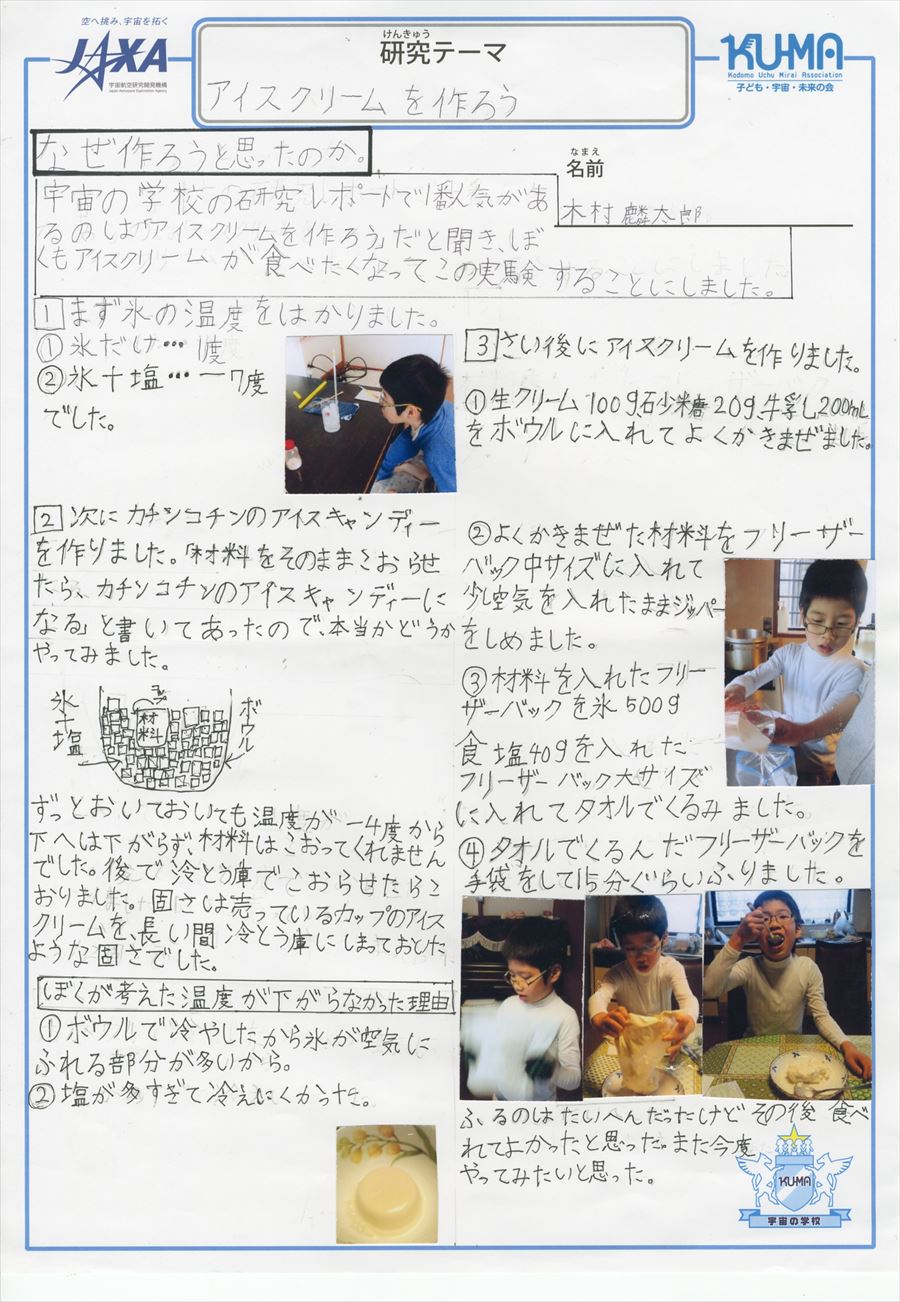 空へ挑み、宇宙を拓く
JAXA
宇宙航空研究開発機構
Japan Aerospace Exploration Agency
けんきゅう
研究テーマ
アイスクリームを作ろう
KU-MA
Kodomo Uchu Mirai Association
子ども・宇宙・未来の会
なぜ作ろうと思ったのか。
なまえ
名前
木村麟太郎
宇宙の学校の研究レポートで1番人気があ
るのは「アイスクリームを作ろう」だと聞き、ぼ
くもアイスクリームが食べたくなってこの実験することにしました。
1 まず氷の温度をはかりました。
①氷だけ…1度
②氷十塩…−7度
でした。
2 次にカチンコチンのアイスキャンディー
を作りました。「材料をそのままこおらせ
たら、カチンコチンのアイスキャンディーに
なる」と書いてあったので、本当かどうか
やってみました。
氷十塩
コップ
材料
ボウル
ずっとおいておいても温度が−4度から
下へは下がらず、材料はこおってくれません
でした。後で冷とう庫でこおらせたらこ
おりました。固さは売っているカップのアイス
クリームを、長い間冷とう庫にしまっておいた
ような固さでした。
ぼくが考えた温度が下がらなかった理由
①ボウルで冷やしたから氷が空気に
ふれる部分が多いから。
②塩が多すぎて冷えにくかった。
3 さい後にアイスクリームを作りました。
①生クリーム100g、砂糖20g、牛乳200mL
をボウルに入れてよくかきまぜました。
②よくかきまぜた材料をフリーザー
バック中サイズに入れて
少し空気を入れたままジッパー
をしめました。
③材料を入れたフリー
ザーバックを氷500g
食塩40gを入れた
フリーザーバック大サイズ
に入れてタオルでくるみました。
④タオルでくるんだフリーザーバックを
手袋をして15分ぐらいふりました。
ふるのはたいへんだったけどその後食べ
れてよかったと思った。また今度
やってみたいと思った。
KU-MA
宇宙の学校